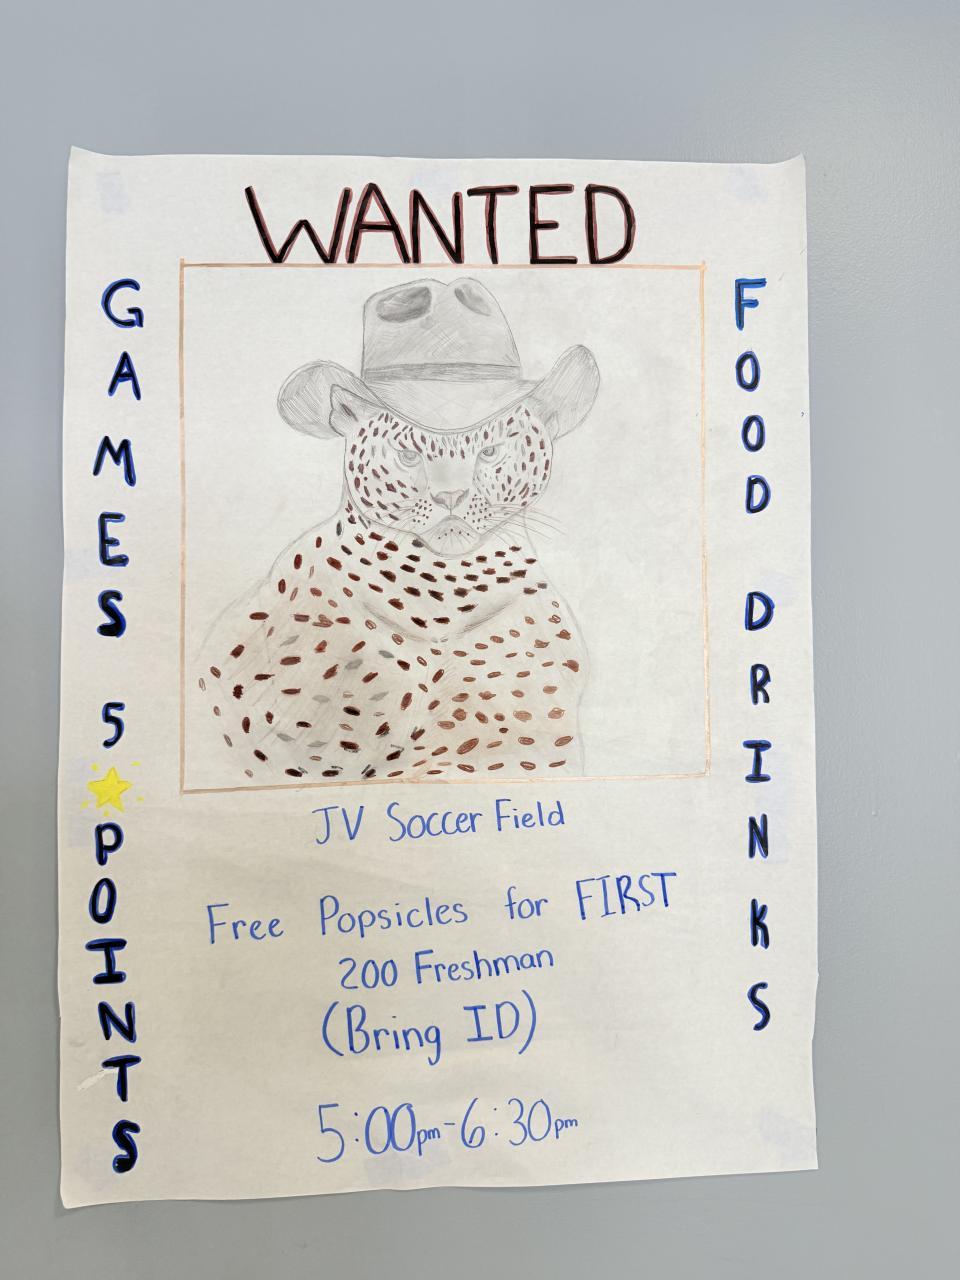 WANTED
GAMES 5 POINTS
FOOD DRINKS
JV Soccer Field
Free Popsicles for FIRST
200 Freshman
(Bring ID)
5:00pm-6:30pm